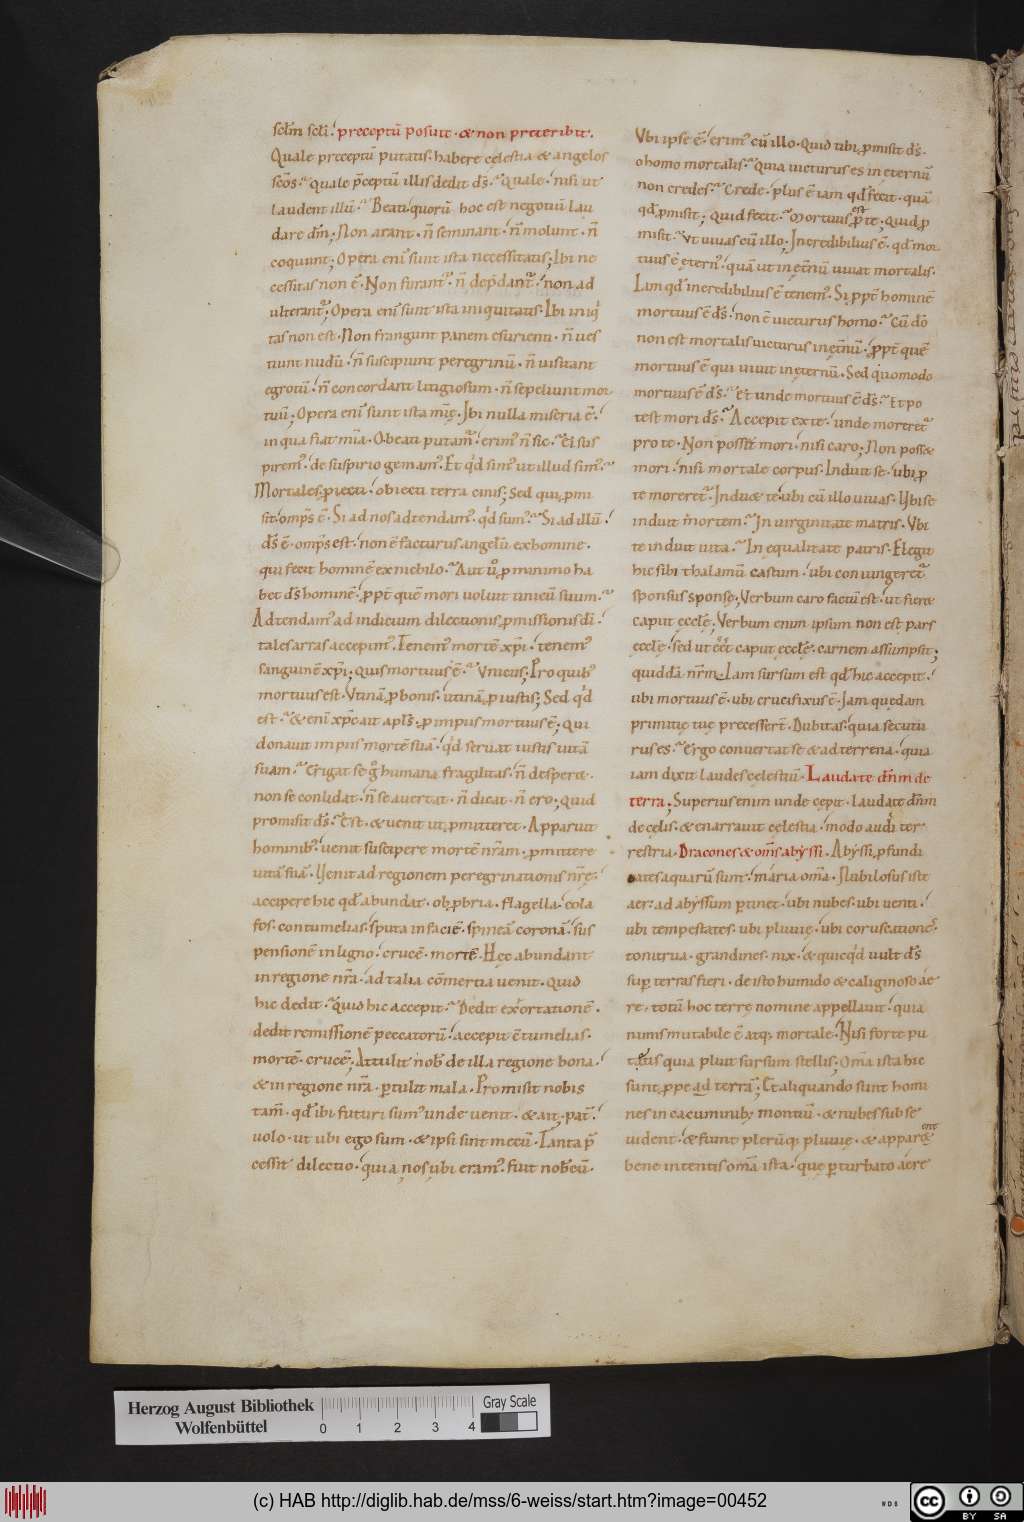 sclm scli. preceptū posuit. & non preteribit.
Quale preceptū putatis. habere celestia & angelos
scōs. quale p̄ceptū illis dedit ds̄. Quale. nisi ut
laudent illū. Beati. quorū hoc est negotiū lau
dare dn̄m; Non arant. n̄ seminant. n̄ molunt. n̄
coquunt; Opera eni sunt ista necessitatis; Ibi ne
cessitas non ē. Non furant. n̄ depdant. non ad
ulterant; Opera eni sunt ista iniquitatis. Ibi iniqi
tas non est. Non frangunt panem esurienti. n̄ ves
tiunt nudū. n̄ suscipiunt peregrinū. n̄ visitant
egrotū. n̄ concordant litigiosum. n̄ sepeliunt mor
tuū; Opera eni sunt ista mię. Ibi nulla miseria ē.
in qua fiat mia. O beati putam. erim n̄ sic. Et sus
pirem. de suspirio gemam. Et qd sim ut illud sim.
Mortales. piecti. obiecti terra cinis; Sed qui pmi
sit. omps ē. Si ad nos adtendam. qd sum. Si ad illū.
ds̄ ē. omps est. non ē facturus angelū ex homine.
qui fecit hominē ex nichilo. Aut u° p minimo ha
bet ds̄ hominē. ppt quē mori voluit unicū suum.
Adtendam ad indicium dilectionis. pmissionis di.
tales arras accepim. Tenem mortē xpi. tenem
sanguinē xpi; Quis mortuus ē. Unicus; Pro quib
mortuus est. Utinā p bonis. utinā p iustis; Sed qd
est. & eni xpc ait apls. p impiis mortuus ē; Qui
donavit impiis mortē suā. qd servat iustis vitā
suam. Erigat se g° humana fragilitas. n̄ desperet.
non se conlidat. n̄ se avertat. n̄ dicat. n̄ ero; Quod
promisit ds̄. Est. & venit ut pmitteret. Apparuit
hominib. venit suscipere mortē nr̄am. pmittere
vitā suā. Venit ad regionem peregrinationis nr̄ę.
accipere hic qd abundat. obpbria. flagella. cola
fos. contumelias. sputa in faciē. spineā coronā. sus
pensionē in ligno. crucē. mortē. Hęc abundant
in regione nr̄a. ad talia cōmertia venit. Quid
hic dedit. Quid hic accepit. Dedit exortationē.
dedit remissionē peccatorū. accepit ctumelias.
mortē. crucē; Attulit nob de illa regione bona.
& in regione nr̄a. ptulit mala. Promisit nobis
tam. qd ibi futuri sum unde venit. & ait. pat.
volo. ut ubi ego sum. & ipsi sint mecū. Tanta p̄
cessit dilectio. quia nos ubi eram. fuit nob cū.
Ubi ipse ē. erim cū illo. Quid tibi pmisit ds̄.
o homo mortalis. Quia victurus es in eternū
non credes. Crede. plus ē iam qd fecit. quā
qd pmisit; Quid fecit. Mortuus est p te; Quid p
misit. Ut vivas cū illo; Incredibilius ē. qd mor
tuus ē ętern. quā ut in ętnū vivat mortalis.
Iam qd incredibilius ē tenem. Si ppt hominē
mortuus ē ds̄. non ē victurus homo. Cū do
non est mortalis victurus in ętnū. ppt quē
mortuus ē qui vivit in ęternū. Sed qomodo
mortuus ē ds̄. Et unde mortuus ē ds̄. Et po
test mori ds̄. Accepit ex te. unde moreret
pro te. Non possēt mori. nisi caro; Non poss&
mori. nisi mortale corpus. Induit se. ubi p
te moreret. Induet te. ubi cū illo vivas. Ubi se
induit mortem. In virginitate matris. Ubi
te induit vita. In equalitate patris. Elegit
hic sibi thalamū castum. ubi coniungeret
sponsus sponsę; Verbum caro factū est. ut fieret
caput ęcclę; Verbum enim ipsum non est pars
ęcclę. sed ut eēt caput ęcclę. carnem assumpsit;
quiddā nr̄m. Iam sursum est qd hic accepit.
ubi mortuus ē. ubi crucifixus ē. Iam quędam
primitię tuę precesser̄t. Dubitas. quia secutu
rus es. Ergo convertat se & ad terrena. quia
iam dixit laudes celestiū. Laudate dn̄m de
terra; Superius enim unde cępit. laudate dn̄m
de cęlis. & enarravit cęlestia. modo audi ter
restria. Dracones & oms abyssi. Abyssi. pfundi
tates aquarū sunt. maria oma. Nubilosus iste
aer. ad abyssum ptinet. ubi nubes. ubi venti.
ubi tempestates. ubi pluvię. ubi coruscationes.
tonitrua. grandines. nix. & quicqd vult ds̄
sup terras fieri. de isto humido & caliginoso ae
re. totū hoc terrę nomine appellavit. quia
nimis mutabile ē atq; mortale. Nisi forte pu
tatis quia pluit sursum stellis; Oma ista hic
sunt. ppe ad terrā; Et aliquando sunt homi
nes in cacuminib; montiū. & nubes sub se
vident. & fiunt plerūq; pluvię. & apparet
bene intentis oma ista. quę pturbato aere
Herzog August Bibliothek
Wolfenbüttel
0 1 2 3 4
Gray Scale
(c) HAB http://diglib.hab.de/mss/6-weiss/start.htm?image=00452
cc BY SA